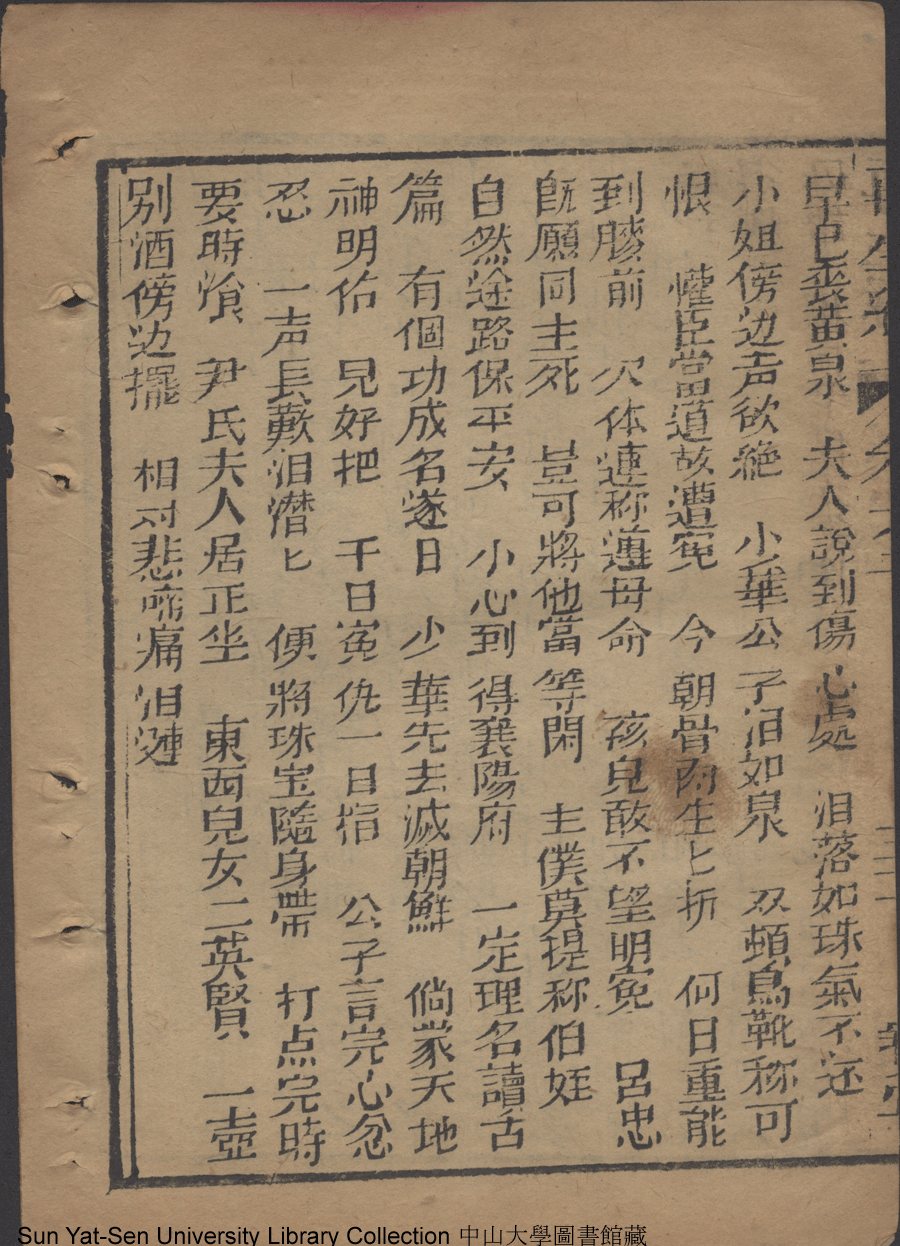 早已喪黃泉　夫人說到傷心處　泪落如珠氣不还
小姐傍边声欲絶　少華公子泪如泉　双頓烏靴称可
恨　懽臣當道故遭寃　今朝骨肉生匕折　何日重能
到膝前　欠体連称遵母命　孩兒敢不望明寃　呂忠
既願同主死　豈可將他當等閑　主僕莫提称伯姪
自然途路保平安　小心到得襄陽府　一定理名讀古
篇　有個功成名遂日　少華先去滅朝鮮　倘蒙天地
神明佑　兒好把　千日寃仇一日指　公子言完心忿
忍　一声長歎泪潜匕　便將珠宝隨身帶　打点完時
要時飡　尹氏夫人居正坐　東西兒女二英賢　一壺
別酒傍边擺　相对悲啼痛泪漣
Sun Yat-Sen University Library Collection 中山大學圖書館藏